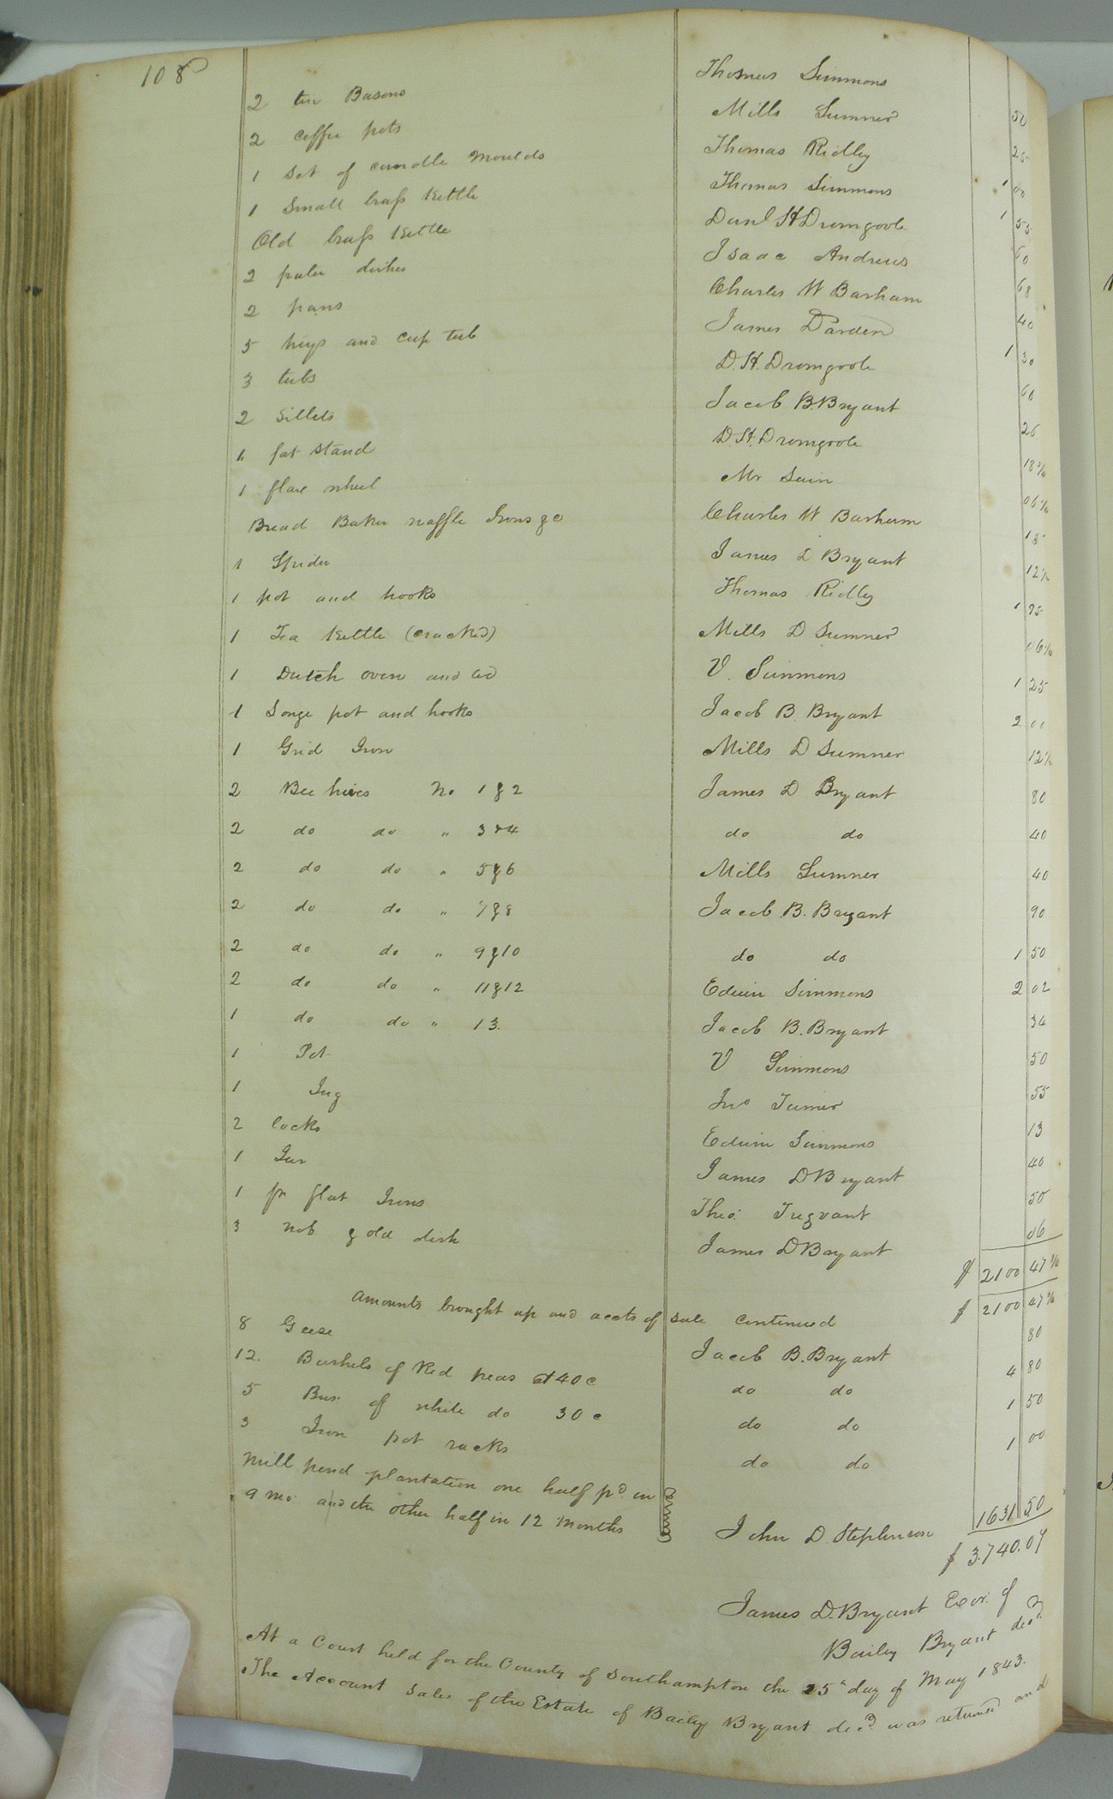 108
2 tin Basons Thomas Simmons 50
2 coffee pots Mills Sumner 25
1 Set of candle moulds Thomas Ridley 1 00
1 Small brass Kettle Thomas Simmons 1 55
Old brass Kettle Danl H Dromgoole 60
2 dishes Isaac Andrews 68
2 pans Charles W Barham 40
5 and cup tub James Darden 1 30
3 tubs D. H. Dromgoole 60
2 Jacob B. Bryant 26
1 fat stand D. H. Dromgoole 18¾
1 flax wheel Mr 06¼
Bread Baker waffle Irons &c Charles W Barham
1 Spider James D Bryant 12½
1 pot and hooks Thomas Ridley 1
1 Tea Kettle (cracked) Mills D Sumner 06¼
1 Dutch oven and Lid V. Simmons 1 25
1 Large pot and hooks Jacob B. Bryant 2 00
1 Grid Iron Mills D Sumner 12½
2 Bee hives No 1 & 2 James D Bryant 80
2 do do " 3 & 4 do do 40
2 do do " 5 & 6 Mills Sumner 40
2 do do " 7 & 8 Jacob B. Bryant 90
2 do do " 9 & 10 do do 1 50
2 do do " 11 & 12 Edwin Simmons 2 02
1 do do " 13. Jacob B. Bryant 34
1 Pot V Simmons 50
1 Jug Jno Turner 55
2 locks Edwin Simmons 13
1 James D Bryant 40
1 pr flat Irons Theo: Tregvant 50
3 & old desk James D Bryant 06
$ 2100 47¾
amounts brought up and accts of sale continued $ 2100 47¾
8 Geese Jacob B. Bryant 80
12. Bushels of Red peas at 40 c do do 4 80
5 Bus: of white do 30 c do do 1 50
3 Iron pot racks do do 1 00
Mill pond plantation one half pd in
9 mo: and the other half in 12 Months John D. Stephenson 1631 50
$ 3.740.07
James D. Bryant Exor. of
Bailey Bryant decd.
At a Court held for the County of Southampton the 25th day of May 1843.
The Account Sales of the Estate of Bailey Bryant decd was returned and